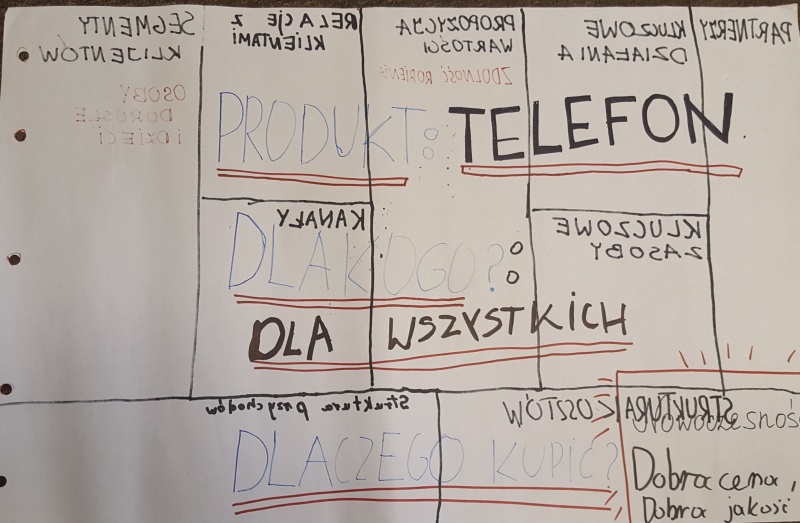 SEGMENTY KLIJENTÓW
OSOBY DOROSŁE i DZIECI
RELACJE Z KLIENTAMI
PROPOZYCJA WARTOŚCI
ZDOLNOŚĆ ROBIENIA
KLUCZOWE DZIAŁANIA
PARTNERZY
PRODUKT: TELEFON
KANAŁY
KLUCZOWE ZASOBY
DLA KOGO?:
DLA WSZYSTKICH
Struktura przychodów
STRUKTURA KOSZTÓW
DLACZEGO KUPIĆ?
Nowoczesność
Dobra cena,
Dobra jakość